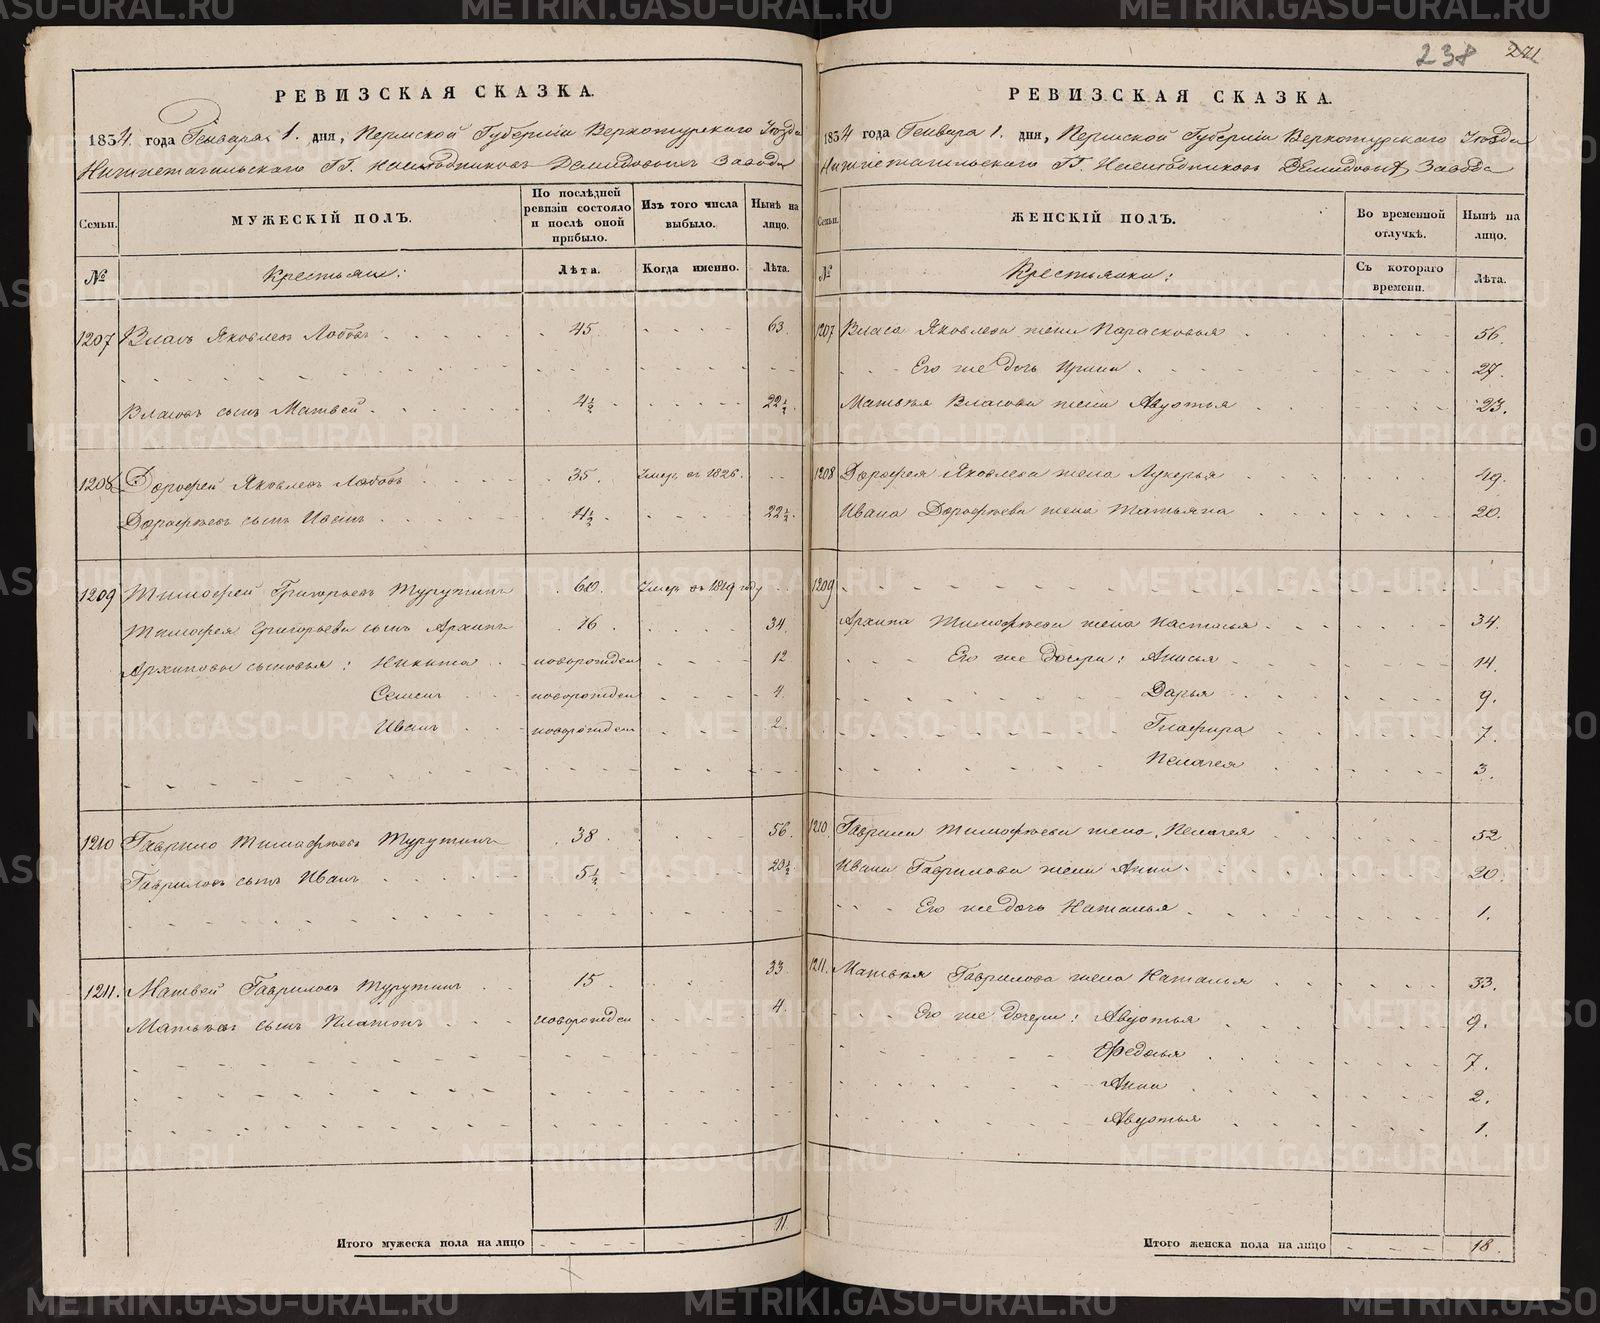 238 241
РЕВИЗСКАЯ СКАЗКА.
1834 года Генваря 1. дня, Пермской Губернiи Верхотурскаго Уѣзда
Нижнетагильскаго ГГ. Наслѣдниковъ Демидовыхъ Завода
Семьи.
МУЖЕСКIЙ ПОЛЪ.
По послѣдней ревизiи состояло и послѣ оной прибыло.
Изъ того числа выбыло.
Нынѣ на лицо.
№
Крестьяне:
Лѣта.
Когда именно.
Лѣта.
1207 Власъ Яковлевъ Лобовъ 45. 63.
Власовъ сынъ Матвей 4½ 22½
1208 Дорофей Яковлевъ Лобовъ 35. Умер. въ 1826.
Дорофѣевъ сынъ Иванъ 4½ 22½
1209 Тимофей Григорьевъ Турутинъ 60. Умер. въ 1819 году
Тимофея Григорьева сынъ Архипъ 16 34.
Архиповы сыновья: Никита новорожден 12
Семенъ новорожден 4.
Иванъ новорожден 2.
1210 Гаврило Тимофѣевъ Турутинъ 38 56.
Гавриловъ сынъ Иванъ 5½ 23½
1211. Матвей Гавриловъ Турутинъ 15 33.
Матвѣевъ сынъ Платонъ новорожден 4.
Итого мужеска пола на лицо 11.
РЕВИЗСКАЯ СКАЗКА.
1834 года Генваря 1. дня, Пермской Губернiи Верхотурскаго Уѣзда
Нижнетагильскаго ГГ. Наслѣдниковъ Демидовыхъ Завода
Семьи.
ЖЕНСКIЙ ПОЛЪ.
Во временной отлучкѣ.
Нынѣ на лицо.
№
Крестьянки:
Съ котораго времени.
Лѣта.
1207 Власа Яковлева жена Парасковья 56.
Его же дочь Ирина 27.
Матвѣя Власова жена Авдотья 23.
1208 Дорофея Яковлева жена Лукерья 49.
Ивана Дорофѣева жена Татьяна 20.
1209
Архипа Тимофѣева жена Настасья 34.
Его же дочери: Анисья 14.
Дарья 9.
Глафира 7.
Пелагея 3.
1210 Гаврила Тимофѣева жена Пелагея 52
Ивана Гаврилова жена Анна 20.
Его же дочь Наталья 1.
1211. Матвѣя Гаврилова жена Наталья 33.
Его же дочери: Авдотья 9.
Федосья 7.
Анна 2.
Авдотья 1.
Итого женска пола на лицо 18.
METRIKI.GASO-URAL.RU